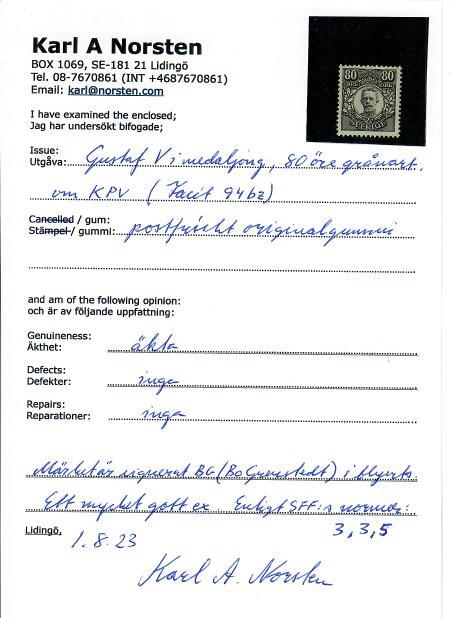 Karl A Norsten
BOX 1069, SE-181 21 Lidingö
Tel. 08-7670861 (INT +4687670861)
Email: karl@norsten.com
80 80
SVERIGE
I have examined the enclosed;
Jag har undersökt bifogade;
Issue:
Utgåva: Gustaf V i medaljong, 80 öre gråsvart.
vm KPV (Facit 94bz)
Cancelled / gum:
Stämpel / gummi: postfriskt originalgummi
and am of the following opinion:
och är av följande uppfattning:
Genuineness:
Äkthet: äkta
Defects:
Defekter: inga
Repairs:
Reparationer: inga
Märket är signerat BG (Bo Grenstedt) i blyerts.
Ett mycket gott ex. Enligt SFF:s normer:
Lidingö, 1.8.23 3,3,5
Karl A. Norsten